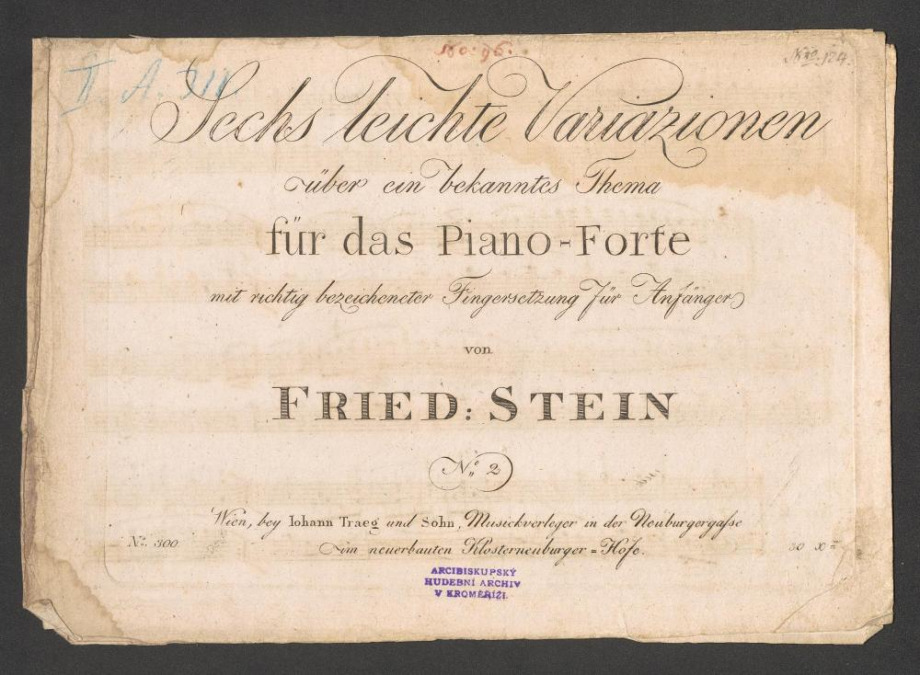 160.96.
Nro. 124.
II A. 311
Sechs leichte Variazionen
über ein bekanntes Thema
für das Piano-Forte
mit richtig bezeicheneter Fingersetzung für Anfänger
von
FRIED: STEIN
No. 2
Wien, bey Iohann Traeg und Sohn, Musickverleger in der Neuburgergasse
No. 300 im neuerbauten Klosterneuburger=Hofe. 30 x
ARCIBISKUPSKÝ
HUDEBNÍ ARCHIV
V KROMĚŘÍŽI.